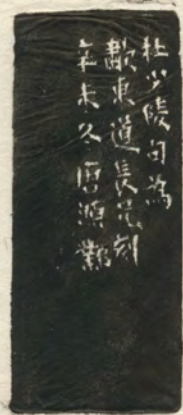 杜少陵句為
歗東道長兄刻
辛未冬唐源鄴